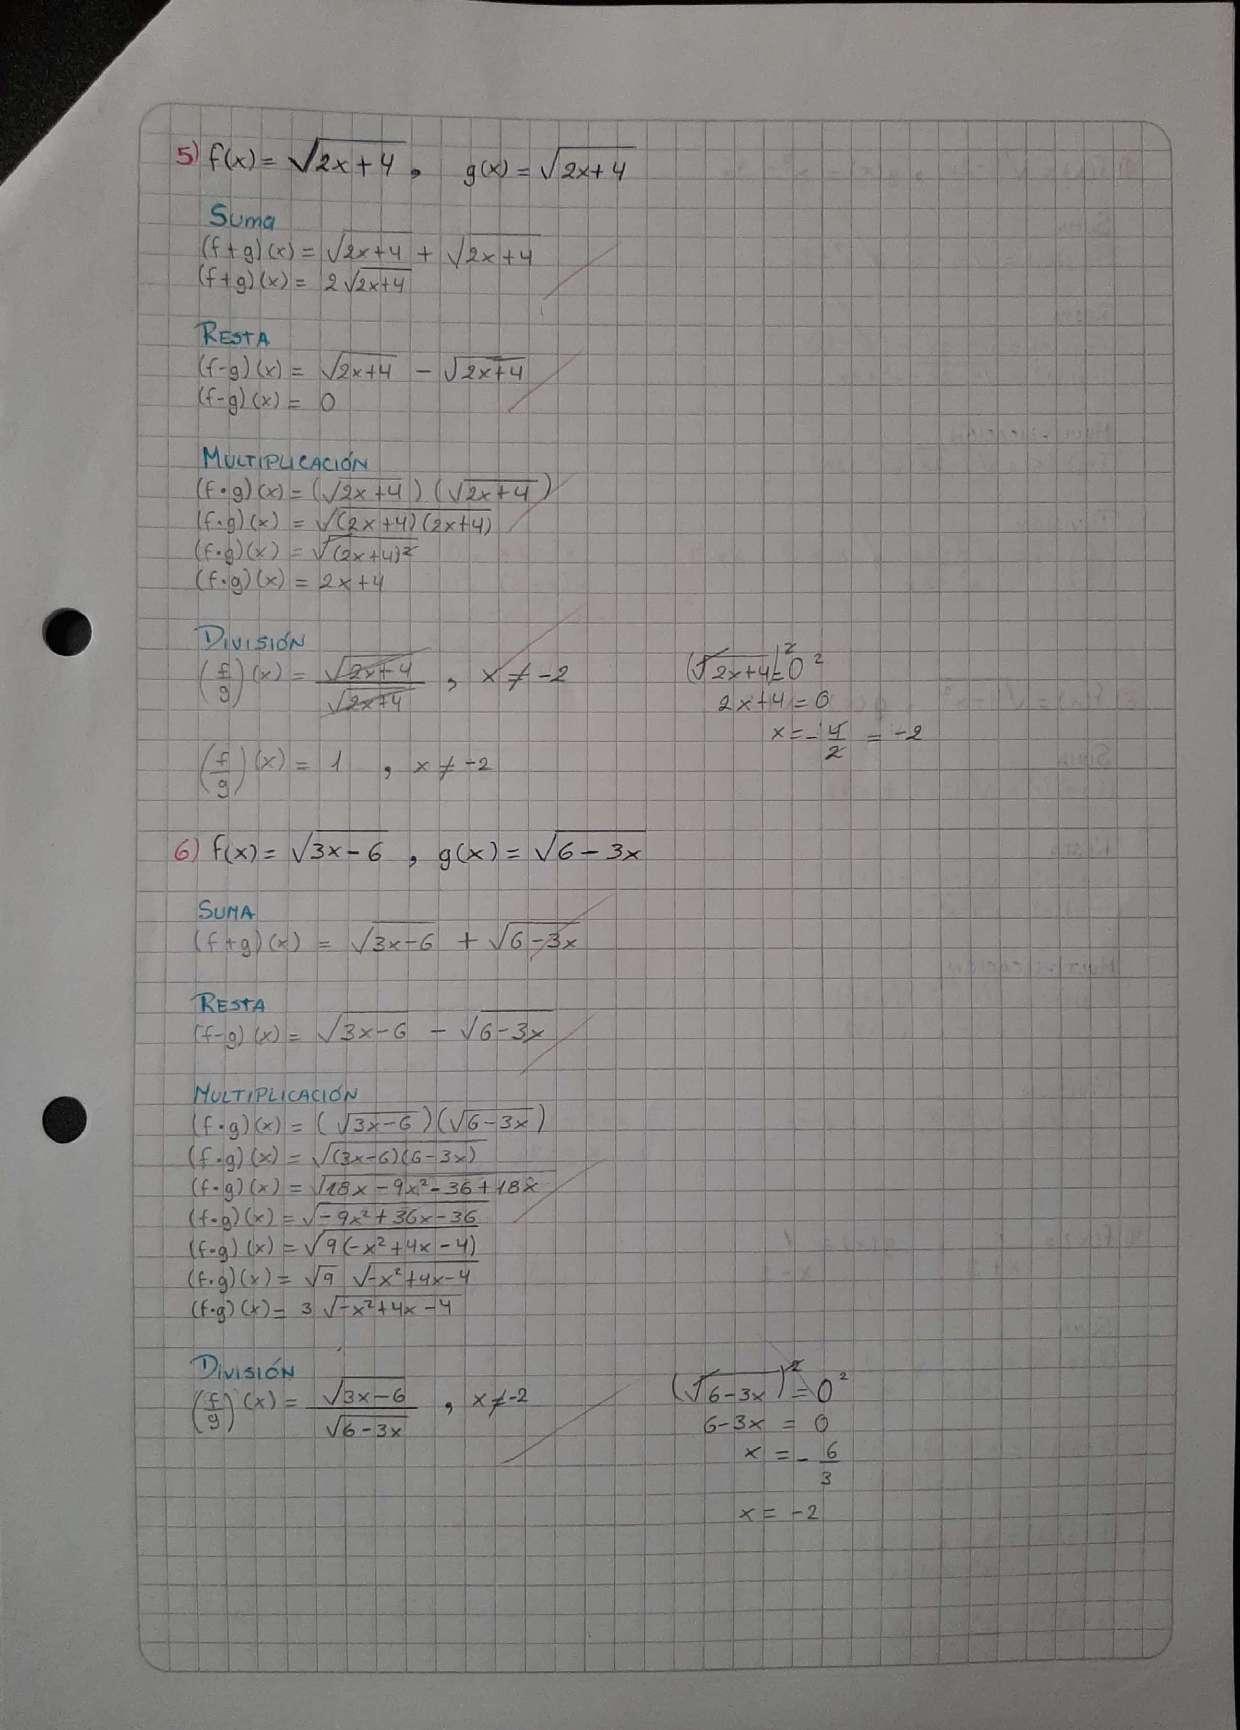 5) f(x) = √2x+4 , g(x) = √2x+4
Suma
(f+g)(x) = √2x+4 + √2x+4
(f+g)(x) = 2√2x+4
RESTA
(f-g)(x) = √2x+4 - √2x+4
(f-g)(x) = 0
MULTIPLICACIÓN
(f·g)(x) = (√2x+4)(√2x+4)
(f·g)(x) = √(2x+4)(2x+4)
(f·g)(x) = √(2x+4)²
(f·g)(x) = 2x+4
DIVISIÓN
(f/g)(x) = √2x+4/√2x+4 , x ≠ -2
(√2x+4)² = 0²
2x+4 = 0
x = -4/2 = -2
(f/g)(x) = 1 , x ≠ -2
6) f(x) = √3x-6 , g(x) = √6-3x
SUMA
(f+g)(x) = √3x-6 + √6-3x
RESTA
(f-g)(x) = √3x-6 - √6-3x
MULTIPLICACIÓN
(f·g)(x) = (√3x-6)(√6-3x)
(f·g)(x) = √(3x-6)(6-3x)
(f·g)(x) = √18x-9x²-36+18x
(f·g)(x) = √-9x²+36x-36
(f·g)(x) = √9(-x²+4x-4)
(f·g)(x) = √9 √-x²+4x-4
(f·g)(x) = 3 √-x²+4x-4
DIVISIÓN
(f/g)(x) = √3x-6/√6-3x , x ≠ -2
(√6-3x)² = 0²
6-3x = 0
x = -6/3
x = -2